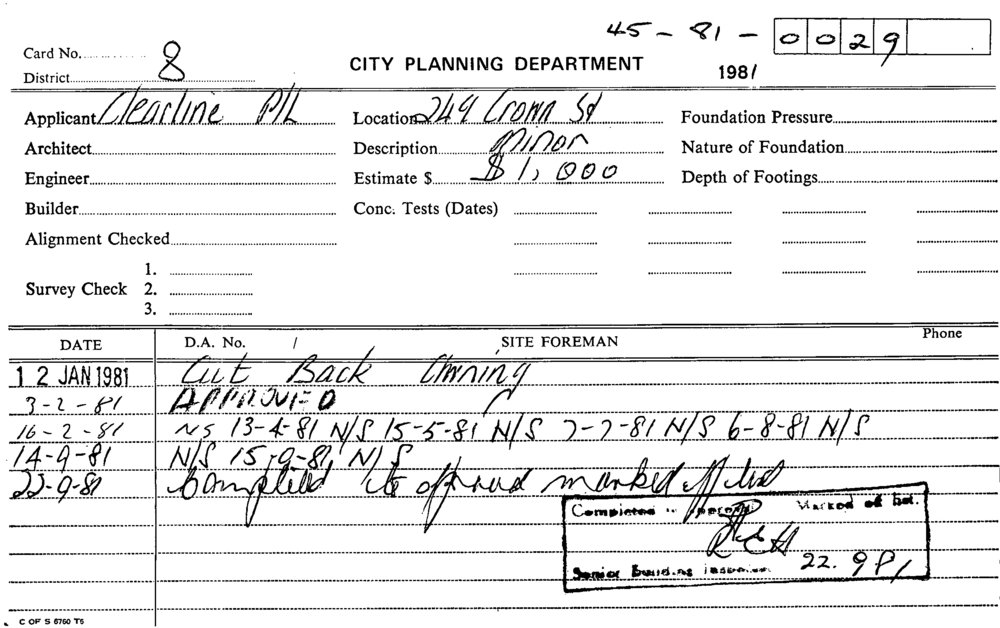 45 - 81 - 0029
Card No. 8
District
CITY PLANNING DEPARTMENT 1981
Applicant Clearline P/L Location 249 Crown St Foundation Pressure
Architect Description Minor Nature of Foundation
Engineer Estimate $ $1,000 Depth of Footings
Builder Conc. Tests (Dates)
Alignment Checked
1.
Survey Check 2.
3.
DATE D.A. No. / SITE FOREMAN Phone
12 JAN 1981 Cut Back Awning
3-2-81 APPROVED
16-2-81 NS 13-4-81 N/S 15-5-81 N/S 7-7-81 N/S 6-8-81 N/S
14-9-81 N/S 15-9-81 N/S
22-9-81 Completed as approved marked off list
Completed as approved Marked off list.
Senior Building Inspector 22.9.81
C OF S 6760 T5